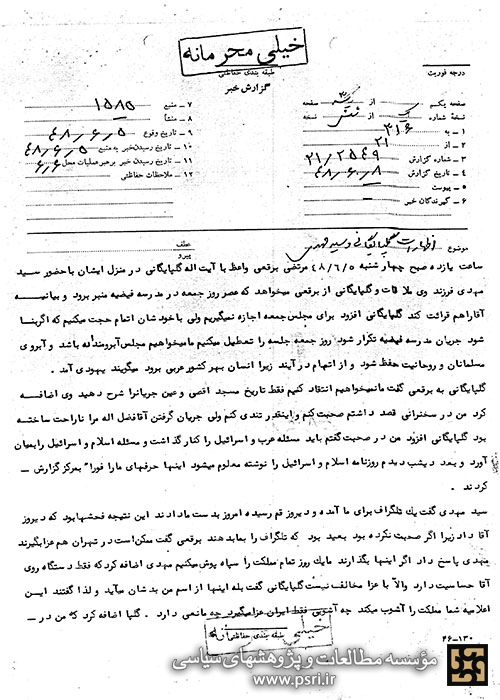 خیلی محرمانه
طبقه بندی حفاظتی
درجه فوریت
گزارش خبر
صفحه یکم از صفحه
نسخه شماره از نسخه
۱ – به ۳۱۶
۲ – از ۲۱
۳ – شماره گزارش ۲۱/۲۵۴۹
۴ – تاریخ گزارش ۴۸/۶/۸
۵ – پیوست
۶ – گیرندگان خبر
۷ – منبع ۱۵۸۵
۸ – منشأ
۹ – تاریخ وقوع ۴۸/۶/۵
۱۰ – تاریخ رسیدن خبر به منبع ۴۸/۶/۵
۱۱ – تاریخ رسیدن خبر برهبر عملیات محل ۶/۶
۱۲ – ملاحظات حفاظتی
موضوع اظهارات گلپایگانی و سید مهدی
عطف
پیرو
ساعت یازده صبح چهار شنبه ۴۸/۶/۵ مرتضی برقعی واعظ با آیت اله گلپایگانی در منزل ایشان با حضور سید
مهدی فرزند وی ملاقات و گلپایگانی از برقعی میخواهد که عصر روز جمعه در مدرسه فیضیه منبر برود و بیانیه
آقا را هم قرائت کند گلپایگانی افزود برای مجلس جمعه اجازه نمیگیریم ولی با خودشان اتمام حجت میکنیم که اگر بنا
شود جریان مدرسه فیضیه تکرار شود روز جمعه جلسه را تعطیل میکنیم ما میخواهیم مجلس آبرومندانه باشد و آبروی
مسلمانان و روحانیت حفظ شود و از اتهام در آیند زیرا انسان بهر کشور عربی برود میگویند یهودی آمد .
گلپایگانی به برقعی گفت ما نمیخواهیم انتقاد کنیم فقط تاریخ مسجد اقصی و عین جریانرا شرح دهید وی اضافه
کرد من در سخنرانی قصد داشتم صحبت کنم و اینقدر تندی کنم ولی جریان گرفتن آقا فضل اله مرا ناراحت ساخته
بود گلپایگانی افزود من در صحبت گفتم باید مسئله عرب و اسرائیل را کنار گذاشت و مسئله اسلام و اسرائیل را بمیان
آورد و بعد دیشب دیدم روزنامه اسلام و اسرائیل را نوشته معلوم میشود اینها حرفهای ما را فوراً بمرکز گزارش –
کردند .
سید مهدی گفت یک تلگراف برای ما آمده و دیروز قم رسیده امروز بدست ما دادند این نتیجه فحشها بود که دیروز
آقا داد زیرا اگر صحبت نکرده بود بعید بود که تلگراف را بما بدهند برقعی گفت ممکن است در تهران هم عزا بگیرند
مهدی پاسخ داد اگر اینها بگذارند ما یک روز تمام مملکت را سیاه پوش میکنیم مهدی اضافه کرد که فقط دستگاه روی
آقا حساسیت دارد والا با عزا مخالف نیست گلپایگانی گفت بله اینها از اسم من بدشان میآید و لذا گفتند این
اعلامیه شما مملکت را آشوب میکند چه آشوبی فقط ایران عزا میگیرد چه مانعی دارد . گلپا اضافه کرد که من در –
خیلی
طبقه بندی حفاظتی
۴۶–۱۳۰
مؤسسه مطالعات و پژوهشهای سیاسی
www.psri.ir